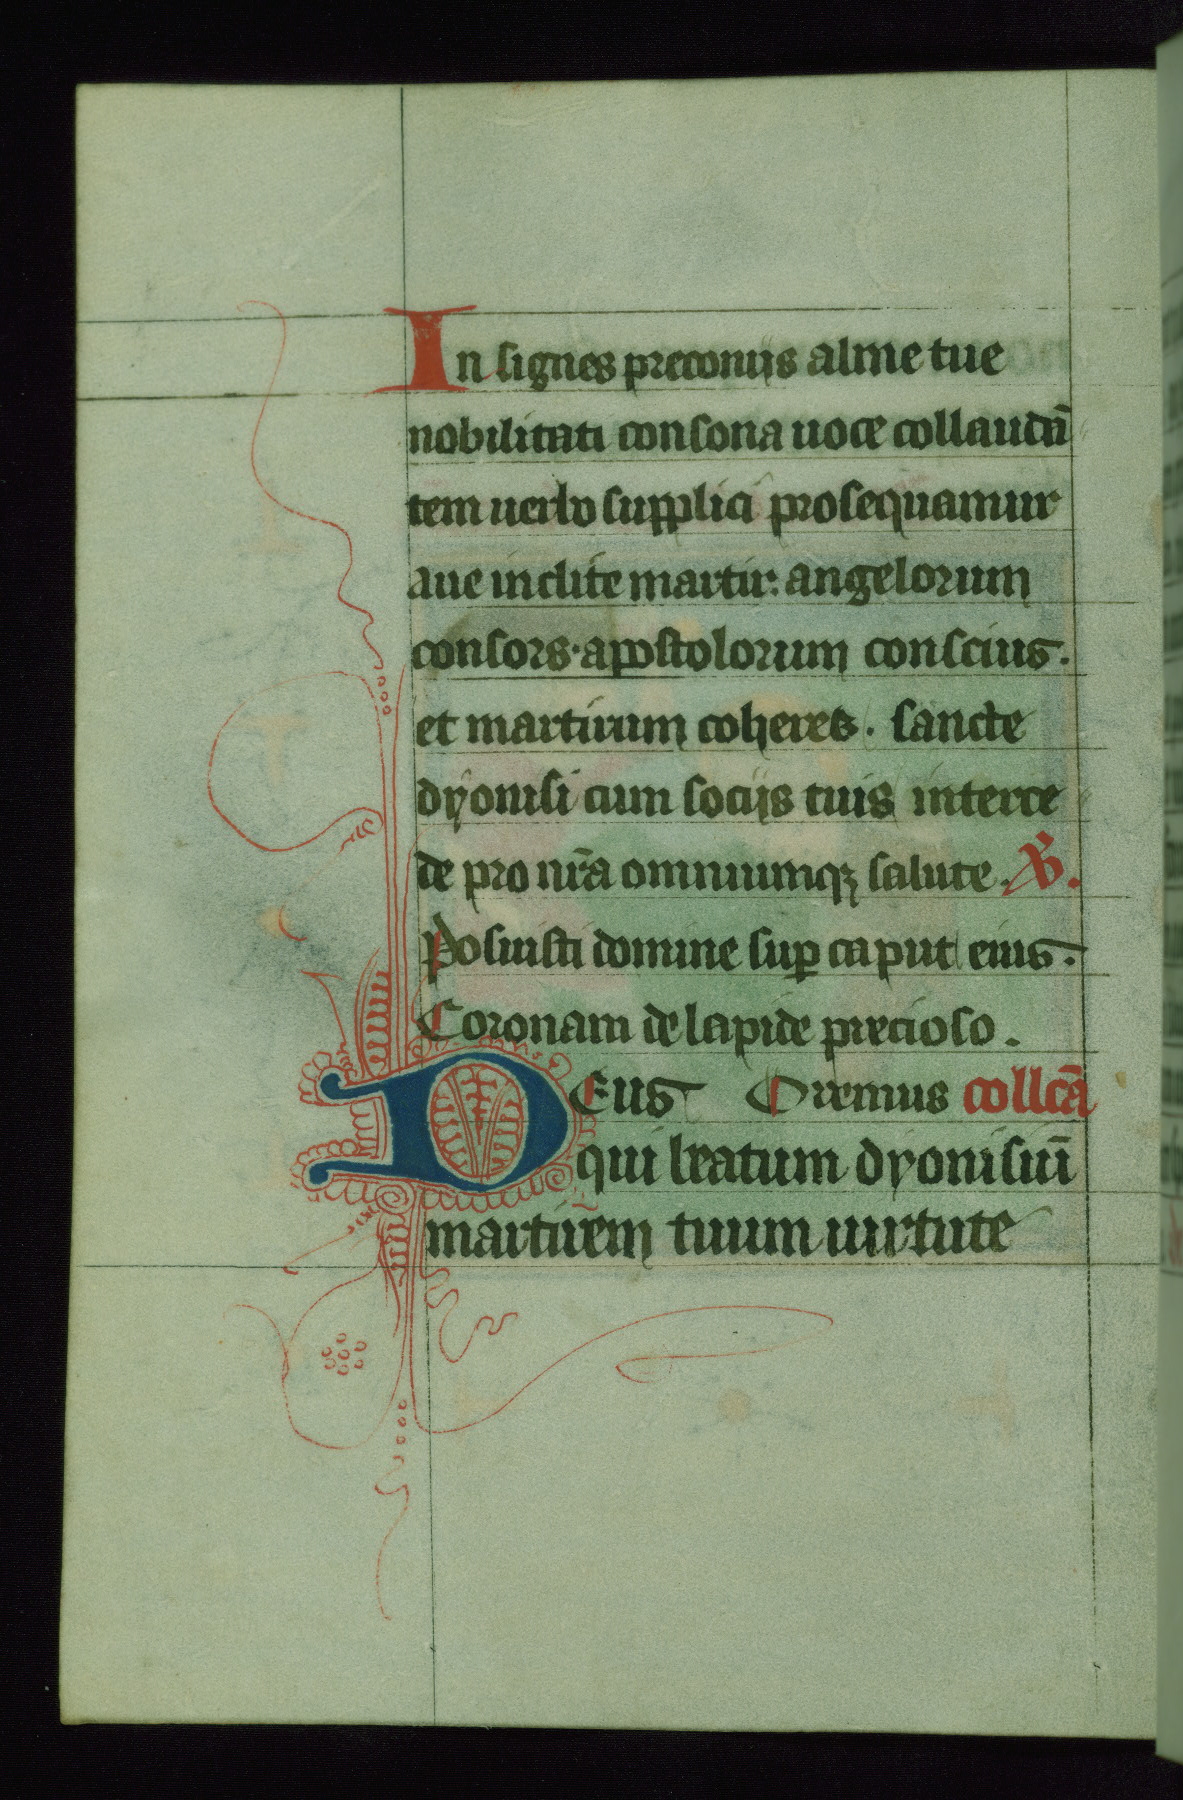 In signes preconiis alme tue
nobilitati consona uoce collaudā
tem uerbo supplici prosequamur
aue inclite martir: angelorum
consors·apostolorum conscius.
et martirum coheres. sancte
dyonisi cum sociis tuis interce
de pro nr̄a omniumqꝫ salute. ℣.
Posuisti domine suꝑ caput eius.
Coronam de lapide precioso.
DEus Oremus collcā
qui beatum dyonisiū
martirem tuum uirtute